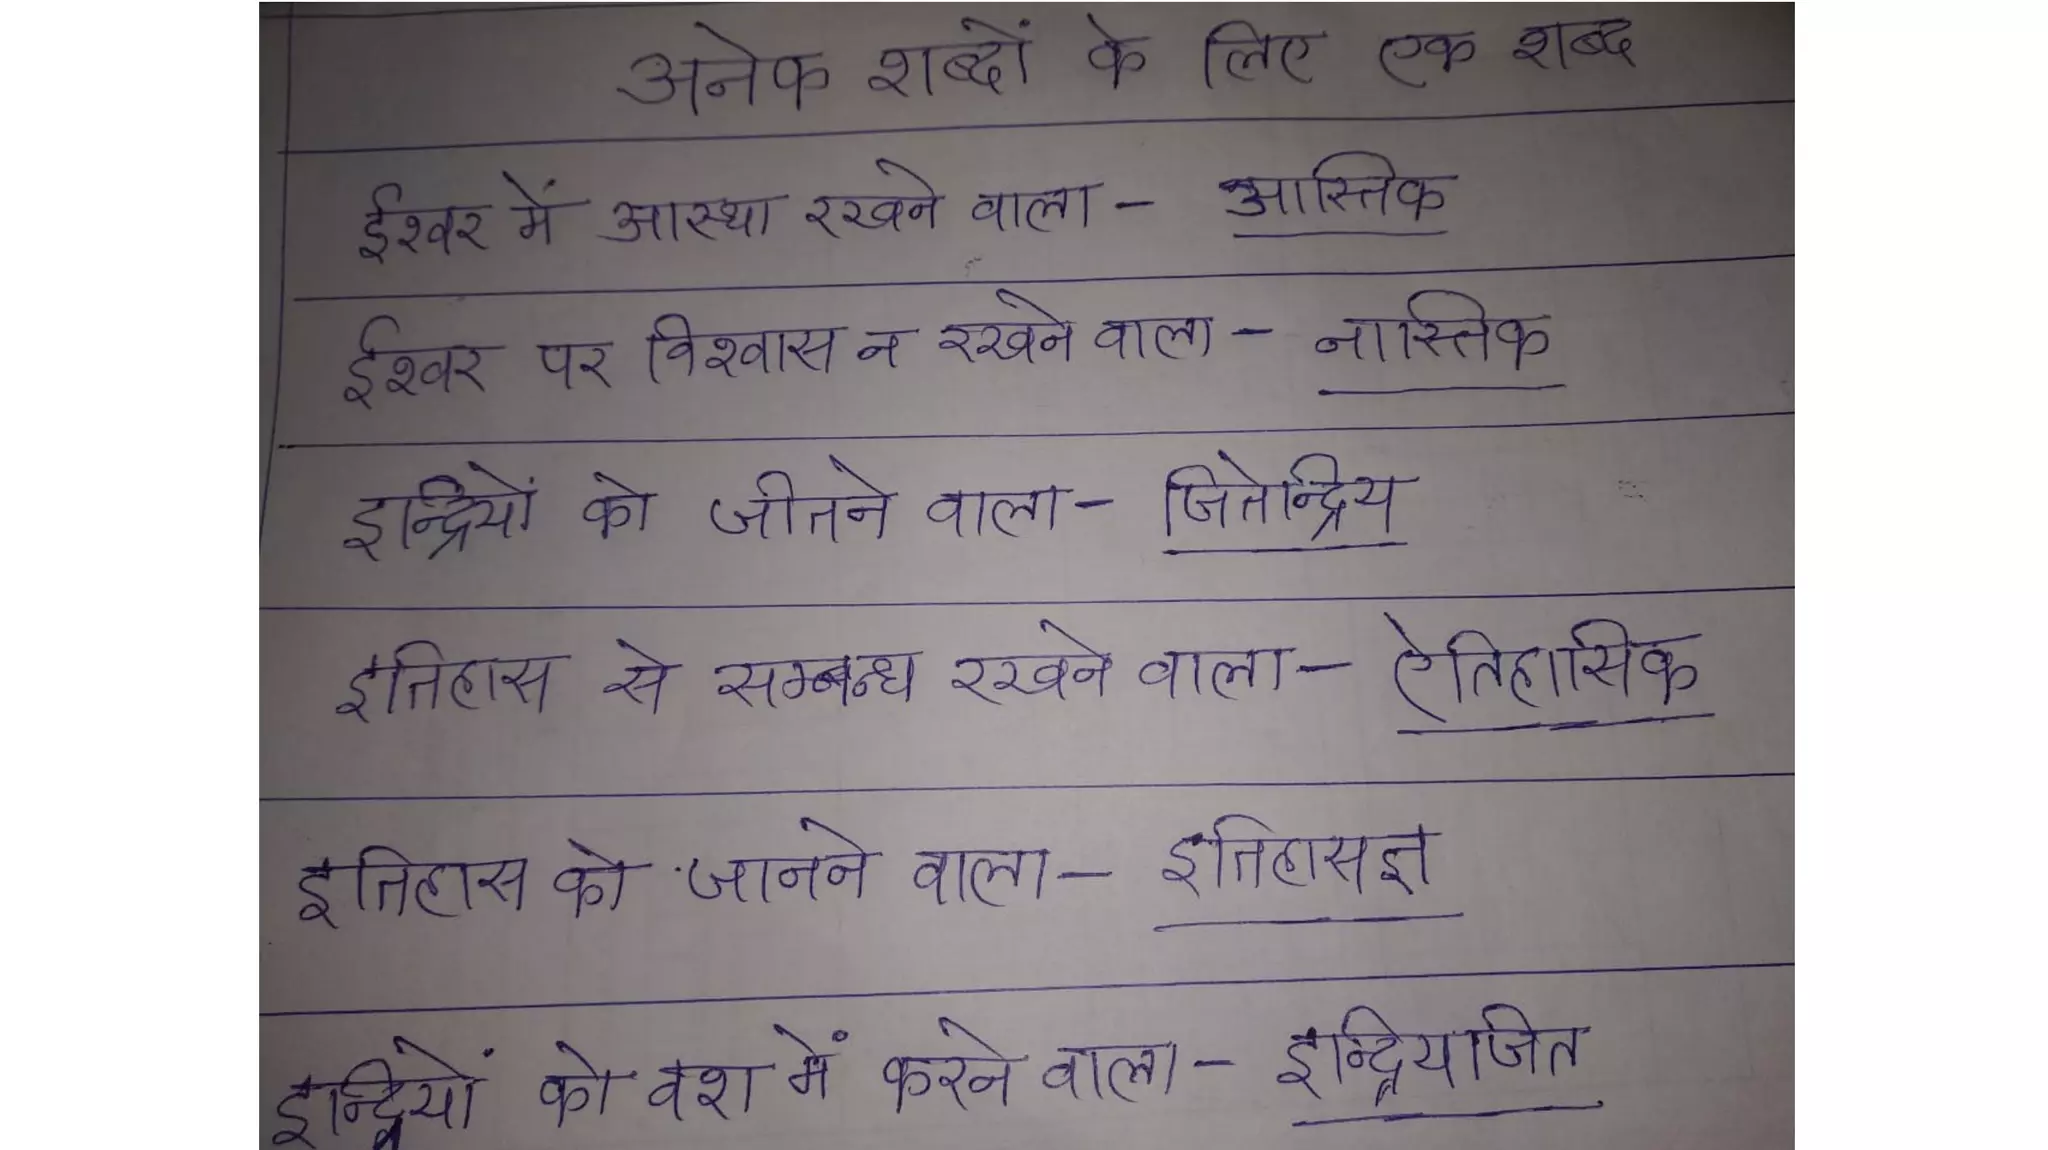 अनेक शब्दों के लिए एक शब्द
ईश्वर में आस्था रखने वाला - आस्तिक
ईश्वर पर विश्वास न रखने वाला - नास्तिक
इन्द्रियों को जीतने वाला - जितेन्द्रिय
इतिहास से सम्बन्ध रखने वाला - ऐतिहासिक
इतिहास को जानने वाला - इतिहासज्ञ
इन्द्रियों को वश में करने वाला - इन्द्रियजित